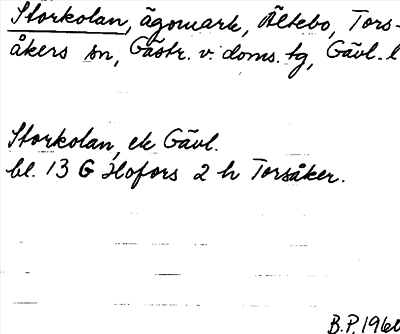 Storkolan, ägomark, Ältebo, Tors-
åkers sn, Gästr. v. doms. tg, Gävl. l
Storkolan, ek Gävl.
bl. 13 G Hofors 2 h Torsåker.
B.P. 196